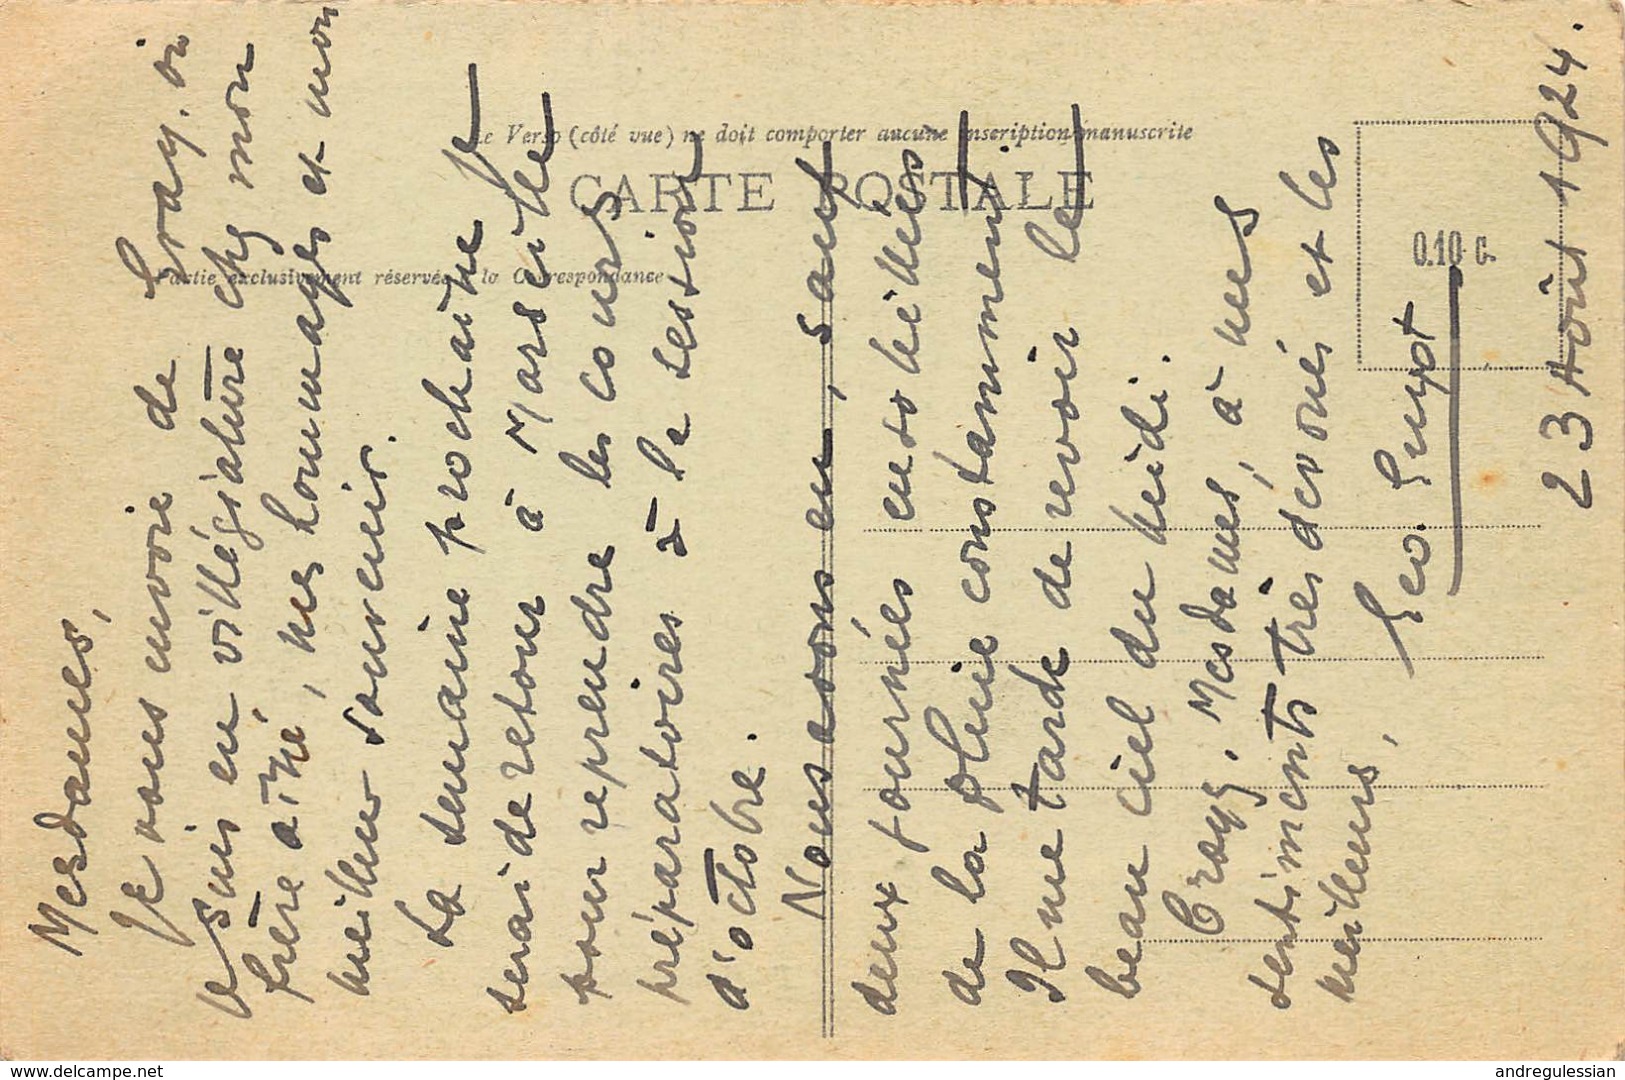 Le Verso (côté vue) ne doit comporter aucune inscription manuscrite
CARTE POSTALE
Partie exclusivement réservée à la Correspondance
0.10 c.
Mesdames,
Je vous envoie de Gray, où
je suis en villégiature chez mon
frère aîné, mes hommages et mon
meilleur souvenir.
La semaine prochaine je
serai de retour à Marseille
pour reprendre les cours
préparatoires à la session
d'octobre.
Nous avons eu, sauf
deux journées ensoleillées
de la pluie constamment.
Il me tarde de revoir le
beau ciel du midi.
Croyez, Mesdames, à mes
sentiments très dévoués et les
meilleurs,
Geo.
23 Août 1924.
www.delcampe.net
andregulessian